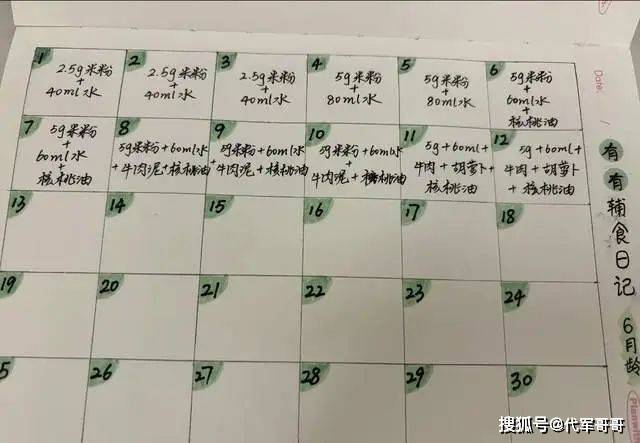 1
2.5g米粉
+
40ml水
2
2.5g米粉
+
40ml水
3
2.5g米粉
+
40ml水
4
5g米粉
+
80ml水
5
5g米粉
+
80ml水
6
5g米粉
+
60ml水
+
核桃油
7
5g米粉
+
60ml水
+
核桃油
8
5g米粉+60ml水
+牛肉泥+核桃油
9
5g米粉+60ml水
+牛肉泥+核桃油
10
5g米粉+60ml水
牛肉泥+核桃油
11
5g+60ml+
牛肉+胡萝卜+
核桃油
12
5g+60ml+
牛肉+胡萝卜
+核桃油
13
14
15
16
17
18
19
20
21
22
23
24
5
26
27
28
29
30
Date:
/
有有辅食日记
6月龄
搜狐号@代军哥哥